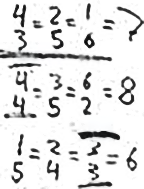 4/3 = 2/5 = 1/6 = 7
4/4 = 3/5 = 6/2 = 8
1/5 = 2/4 = 3/3 = 6